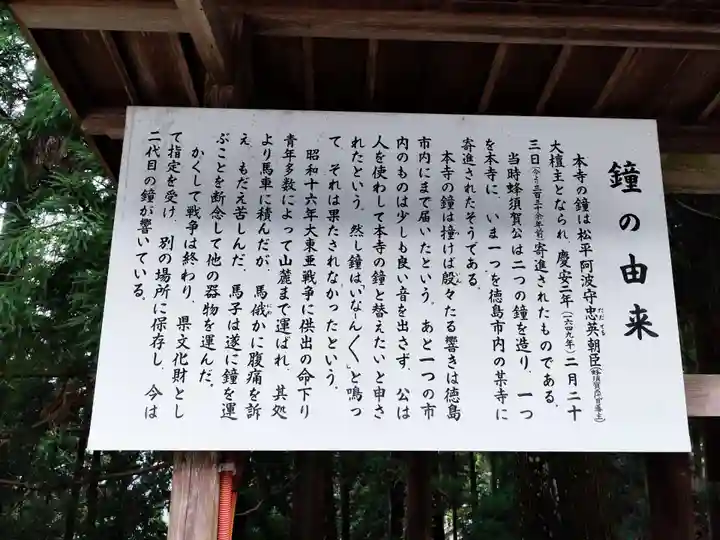 鐘の由来
本寺の鐘は松平阿波守忠英朝臣
大檀主となられ、慶安二年(一六四九年)二月二十
三日(今より三百三十余年前)寄進されたものである。
当時蜂須賀公は二つの鐘を造り、一つ
を本寺に、いま一つを徳島市内の某寺に
寄進されたそうである。
本寺の鐘は撞けば殷々たる響きは徳島
市内にまで届いたという。あと一つの市
内のものは少しも良い音を出さず、公は
人を使わして本寺の鐘と替えたいと申さ
れたという。然し鐘はいなーん〱と鳴っ
て、それは果たされなかったという。
昭和十六年大東亜戦争に供出の命下り
青年多数によって山麓まで運ばれ、其処
より馬車に積んだが、馬俄かに腹痛を訴
え、もだえ苦しんだ。馬子は遂に鐘を運
ぶことを断念して他の器物を運んだ。
かくして戦争は終わり、県文化財とし
て指定を受け、別の場所に保存し、今は
二代目の鐘が響いている。